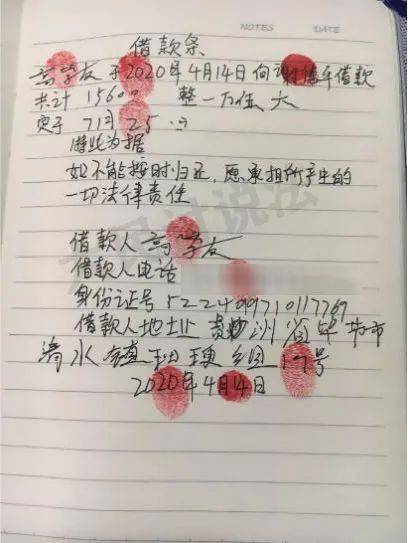 NOTES DATE
借款条
高学友于2020年4月14日向谢德平借款
共计 15600 整一万伍六
定于 7月25日
特此为据
如不能按时归还,愿承担所产生的
一切法律责任
借款人高学友
借款人电话
身份证号
借款人地址贵州省毕节市
清水镇 组17号
2020年4月14日